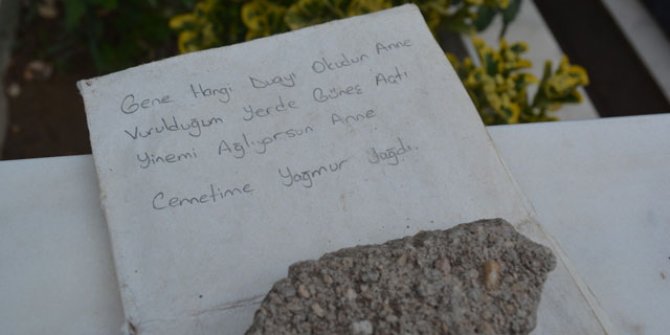 Gene Hangi Duayi Okudun Anne
Vurulduğum Yerde Güneş Açti
Yinemi Ağlıyorsun Anne
Cennetime Yağmur Yağdı.